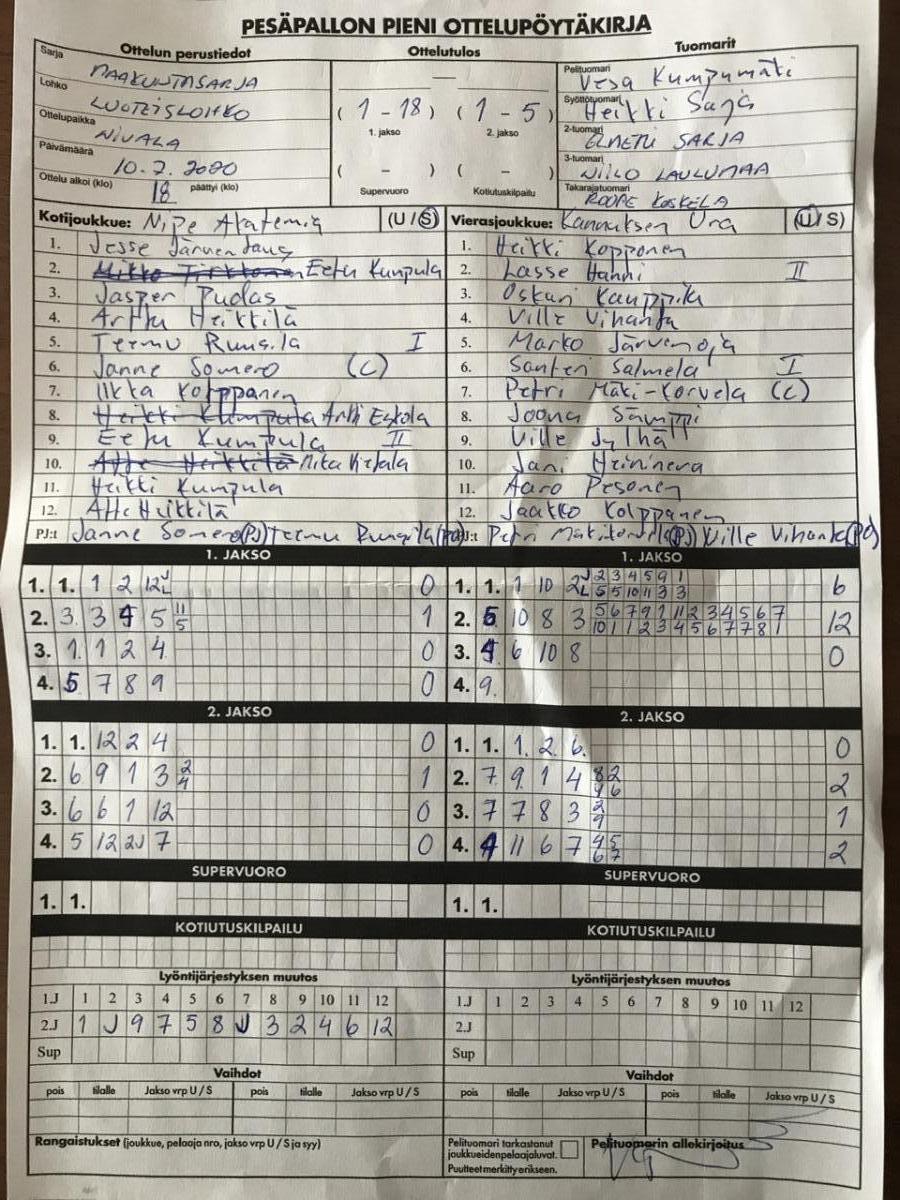 PESÄPALLON PIENI OTTELUPÖYTÄKIRJA
Ottelun perustiedot Ottelutulos Tuomarit
Sarja MAAKUNTASARJA
Lohko LUOTEISLOHKO
Ottelupaikka NIVALA
Päivämäärä 10.7.2020
Ottelu alkoi (klo) 18 päättyi (klo)
— 
( 1 - 18 ) ( 1 - 5 )
1. jakso 2. jakso
( - ) ( - )
Supervuoro Kotiutuskilpailu
Pelituomari Vesa Kumpumäki
Syöttötuomari Heikki Sarja
2-tuomari ELMERI SARJA
3-tuomari NIILO LAULUMAA
Takarajatuomari ROOPE KOSKELA
Kotijoukkue: Nipe Akatemia (U / S)
1. Jesse Järventaus
2. Mikko Tirkkonen Eetu Kumpula
3. Jasper Pudas
4. Arttu Heikkilä
5. Teemu Ruusila I
6. Janne Somero (C)
7. Ilkka Kolppanen
8. Heikki Kumpula Antti Eskola
9. Eetu Kumpula II
10. Atte Heikkilä Mika Viefala
11. Heikki Kumpula
12. Atte Heikkilä
PJ:t Janne Somero (PJ) Teemu Ruusila (PJ)
Vierasjoukkue: Kannuksen Ura (U / S)
1. Heikki Kopponen
2. Lasse Hanni II
3. Oskari Kauppila
4. Ville Vihanta
5. Marko Järvenoja
6. Santeri Salmela I
7. Petri Mäki-Korvela (C)
8. Joona Sämppi
9. Ville Jylhä
10. Jani Heininera
11. Aaro Pesonen
12. Jaakko Kolppanen
PJ:t Petri Mäkikorvela (PJ) Ville Vihanta (PJ)
1. JAKSO 1. JAKSO
1. 1. 1 2 12 J L 0
2. 3. 3 4 5 11 5 1
3. 1. 1 2 4 0
4. 5 7 8 9 0
1. 1. 1 10 2 J L 2 3 4 5 9 1 6
5 5 10 11 3 3
2. 5 10 8 3 5 6 7 9 1 11 2 3 4 5 6 7 12
10 1 1 2 3 4 5 6 7 7 8 1
3. 4 6 10 8 0
4. 9.
2. JAKSO 2. JAKSO
1. 1. 12 2 4 0
2. 6 9 1 3 2 4 1
3. 6 6 1 12 0
4. 5 12 2J 7 0
1. 1. 1. 2. 6. 0
2. 7. 9. 1 4 8 2 2
9 6
3. 7 7 8 3 2 9 1
4. 4 11 6 7 4 5 2
6 7
SUPERVUORO SUPERVUORO
1. 1. 1. 1.
KOTIUTUSKILPAILU KOTIUTUSKILPAILU
Lyöntijärjestyksen muutos Lyöntijärjestyksen muutos
1.J 1 2 3 4 5 6 7 8 9 10 11 12 1.J 1 2 3 4 5 6 7 8 9 10 11 12
2.J 1 J 9 7 5 8 J 3 2 4 6 12 2.J
Sup Sup
Vaihdot Vaihdot
pois tilalle Jakso vrp U / S pois tilalle Jakso vrp U / S pois tilalle Jakso vrp U / S pois tilalle Jakso vrp U / S
Rangaistukset (joukkue, pelaaja nro, jakso vrp U / S ja syy)
Pelituomari tarkastanut
joukkueidenpelaajaluvat.
Puutteet merkitty erikseen.
Pelituomarin allekirjoitus